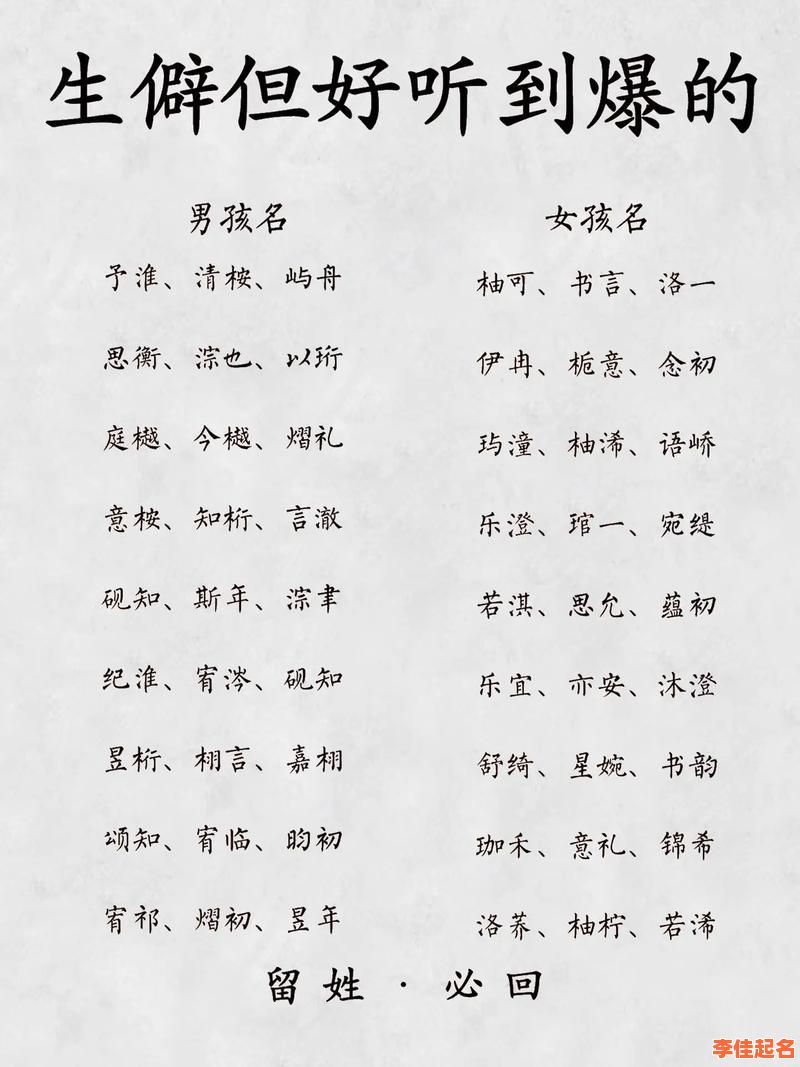 生僻但好听到爆的
男孩名
予淮、清桉、屿舟
思衡、淙也、以珩
庭樾、今樾、熠礼
意桉、知桁、言澈
砚知、斯年、淙聿
纪淮、宥涔、砚知
昱桁、栩言、嘉栩
颂知、宥临、昀初
宥祁、熠初、昱年
女孩名
柚可、书言、洛一
伊冉、栀意、念初
玙潼、柚浠、语峤
乐澄、琯一、宛缇
若淇、思允、蕴初
乐宜、亦安、沐澄
舒绮、星婉、书韵
珈禾、意礼、锦希
洛荞、柚柠、若浠
留姓·必回
李佳起名